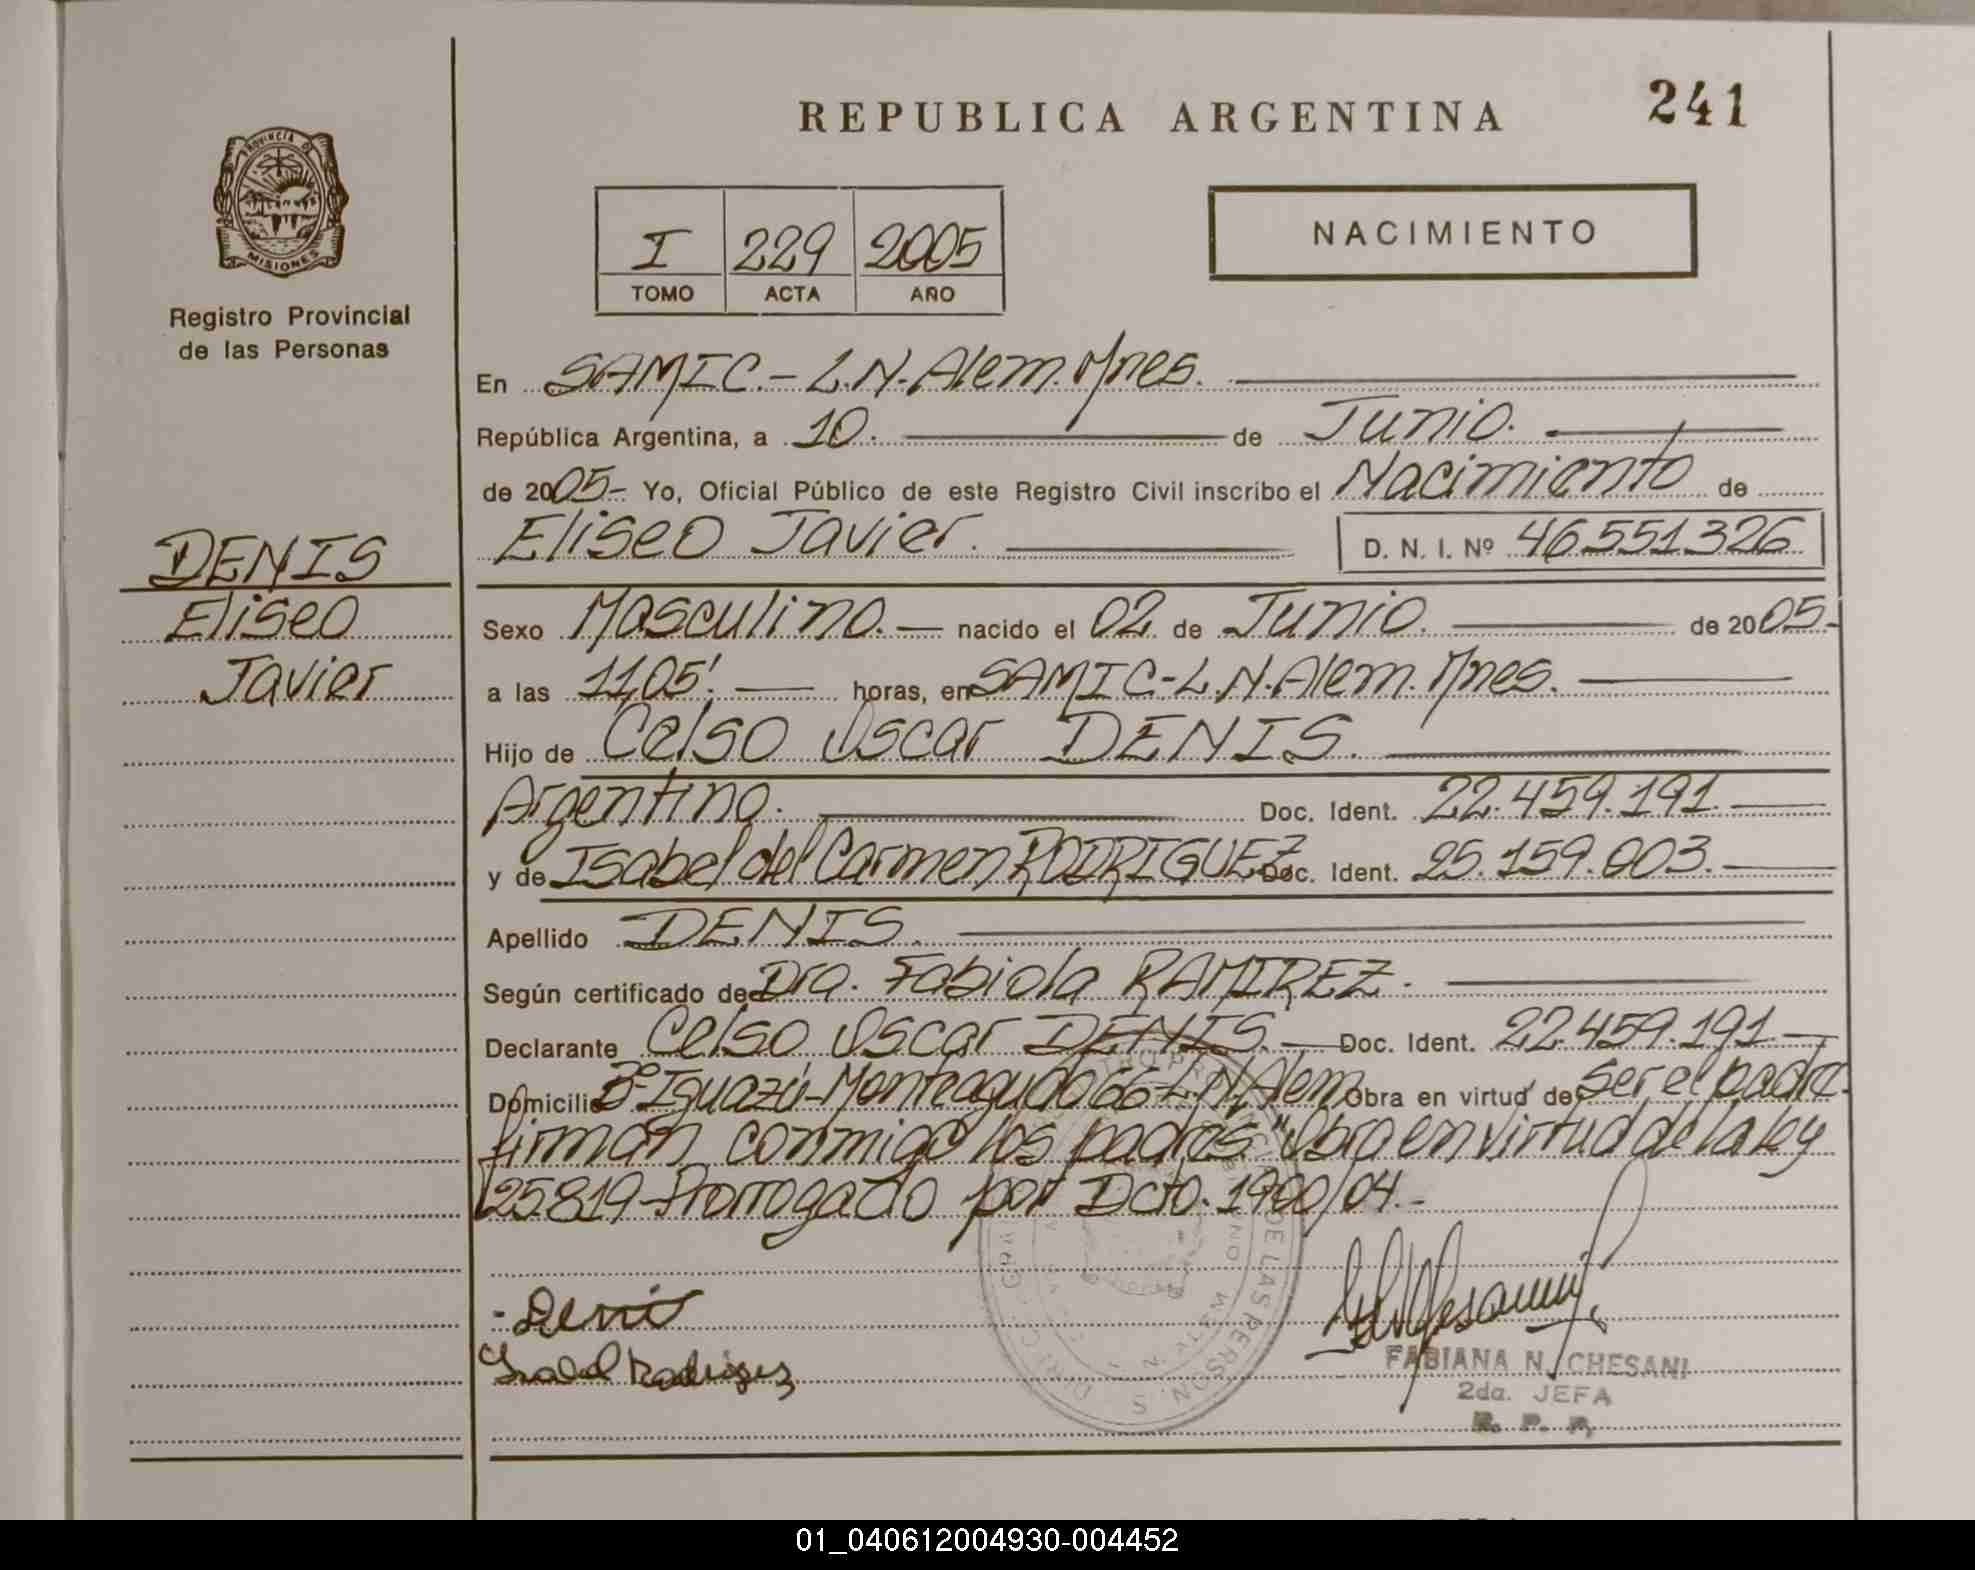 REPUBLICA ARGENTINA
241
PROVINCIA DE
MISIONES
Registro Provincial
de las Personas
I 229 2005
TOMO ACTA AÑO
NACIMIENTO
DENIS
Eliseo
Javier
En SAMIC.- L.N. Alem. Mnes.
República Argentina, a 10. de Junio.
de 2005- Yo, Oficial Público de este Registro Civil inscribo el Nacimiento de
Eliseo Javier. D. N. I. Nº 46551326
Sexo Masculino. nacido el 02 de Junio. de 2005.-
a las 11,05'. horas, en SAMIC-L.N. Alem. Mnes.
Hijo de Celso Oscar DENIS.
Argentino. Doc. Ident. 22.459.191
y de Isabel del Carmen RODRIGUEZ Doc. Ident. 25.159.003.
Apellido DENIS.
Según certificado de Dra. Fabiola RAMIREZ.
Declarante Celso Oscar DENIS. Doc. Ident. 22.459.191
Domicilio Bº Iguazú-Monteagudo 66 L.N. Alem Obra en virtud de Ser el padre
firman conmigo los padres "Obra en virtud de la ley
25.819-Prorrogado por Dcto. 1900/04.-
- Denis
Isabel Rodriguez
DE LAS PERSONAS
L. N. ALEM
FABIANA N. CHESANI
2da. JEFA
R. P. P.
01_040612004930-004452